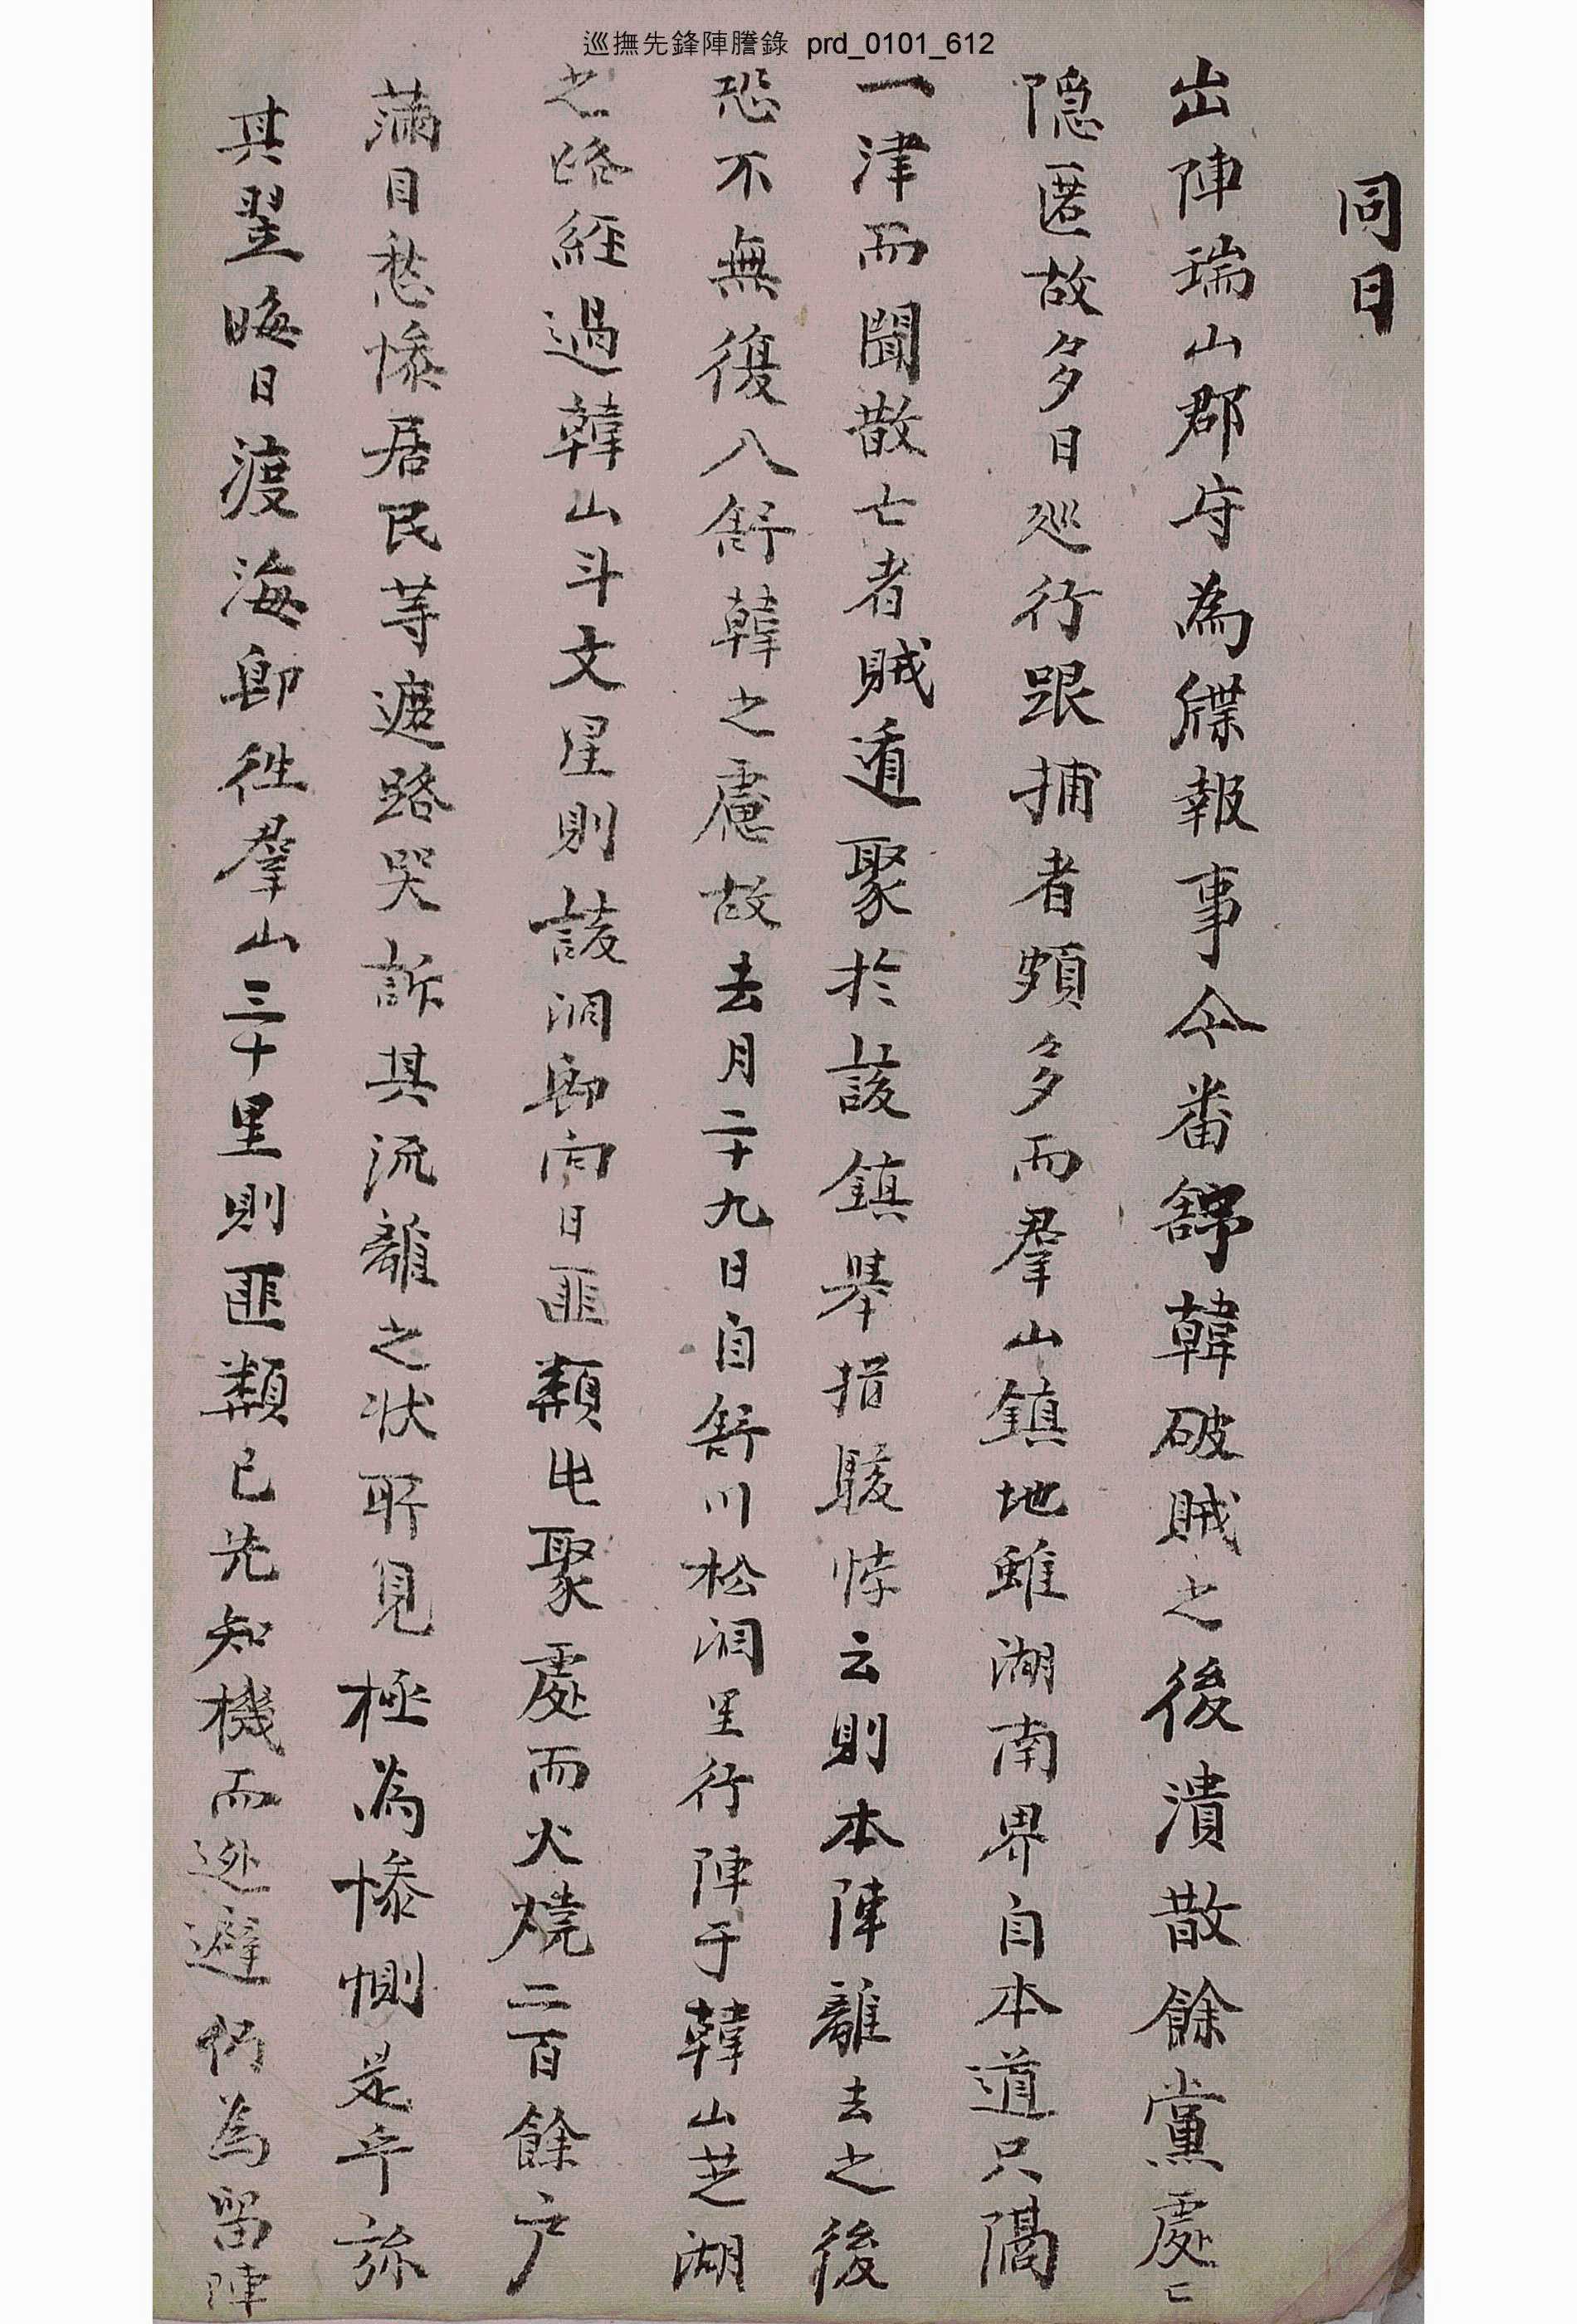 巡撫先鋒陣謄錄 prd_0101_612
同日
出陣瑞山郡守為牒報事今番舒韓破賊之後潰散餘黨處〻
隱匿故多日巡行跟捕者頗多而羣山鎮地雖湖南界自本道只隔
一津而聞散亡者賊遁聚於該鎮舉措駭悖云則本陣離去之後
恐不無復入舒韓之慮故去月二十九日自舒川松洞里行陣于韓山芝湖
之路經過韓山斗文星則該洞卽向日匪類屯聚處而火燒二百餘戶
滿目愁慘居民等遮路哭訴其流離之狀所見極為慘惻是乎㫆
其翌晦日渡海卽徃羣山三十里則匪類已先知機而逃避仍為留陣